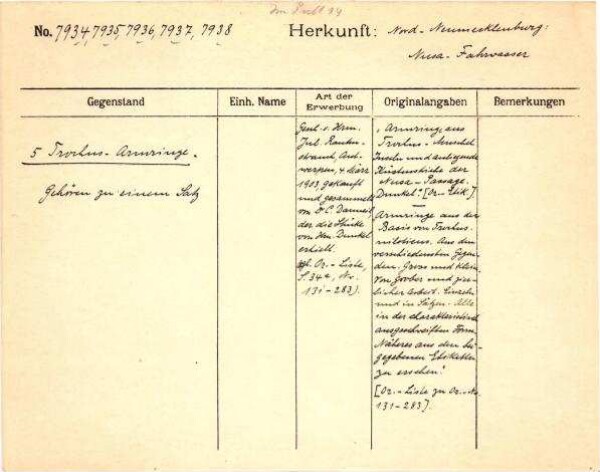 Im Pult 14
No. 7934, 7935, 7936, 7937, 7938
Herkunft: Nord-Neumecklenburg:
Nusa-Fahrwasser
Gegenstand
Einh. Name
Art der
Erwerbung
Originalangaben
Bemerkungen
5 Trochus-Armringe.
Gehören zu einem Satz
Jul.
4 März
1903, gekauft
und gesammelt
von
der die Stücke
von Hrn. Dunkel
erhielt.
cf. Or.-Liste,
S. 34a, No.
131-283).
"Armringe aus
Trochus-Muschel.
Inseln und anliegende
Küstenstriche der
Nusa-Passage.
Dunkel." [Or.-Etik.].
Armringe aus der
Basis von Trochus
niloticus. Aus den
verschiedensten Gegen-
den. Gross und klein.
Von grober und zier-
licher Arbeit. Einzeln
und in Sätzen. Alle
in der charakteristisch
ausgeschweiften Form.
Näheres aus den bei-
gegebenen Etiketten
zu ersehen."
[Or.-Liste zu Or.-No.
131-283].